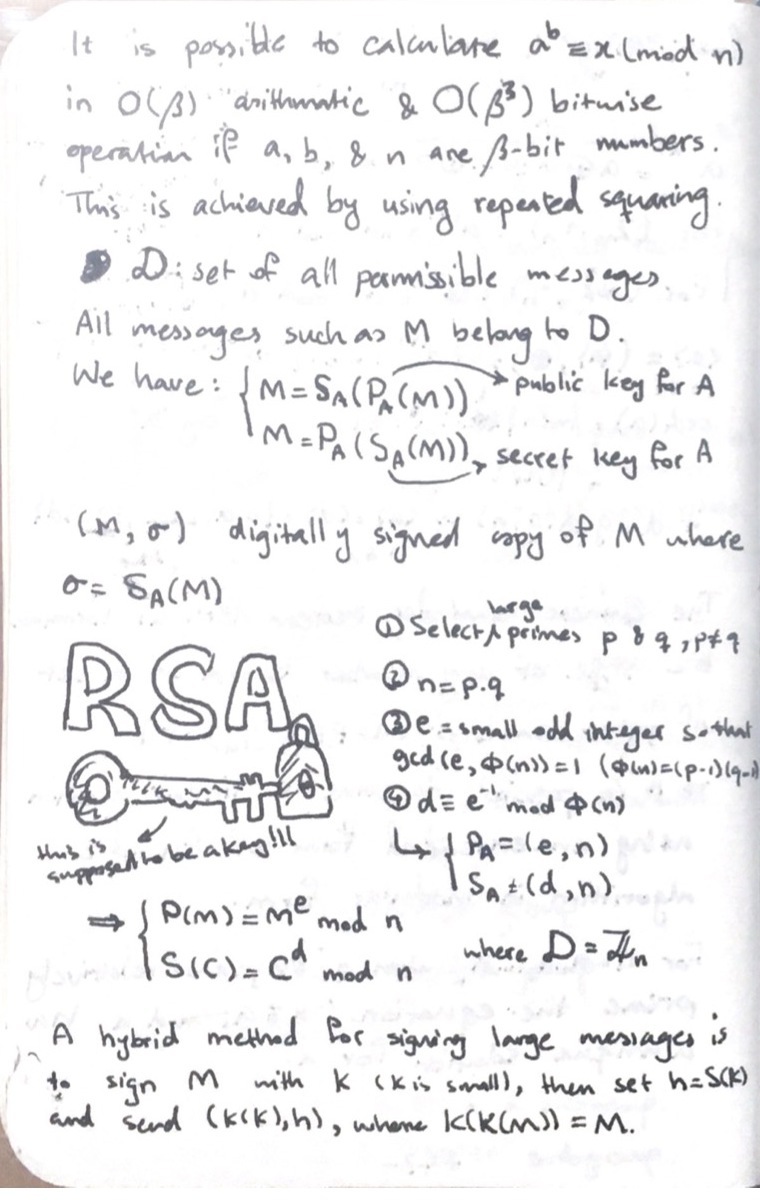 It is possible to calculate a^b ≡ x (mod n)
in O(β) arithmatic & O(β³) bitwise
operation if a, b, & n are β-bit numbers.
This is achieved by using repeated squaring.
D: set of all permissible messages
All messages such as M belong to D.
We have: { M = S_A(P_A(M)) → public key for A
M = P_A(S_A(M)) → secret key for A
(M, σ) digitally signed copy of M where
σ = S_A(M)
RSA
this is
supposed to be a key!!!
① Select large primes p & q, p≠q
② n = p.q
③ e = small odd integer so that
gcd(e, Φ(n)) = 1 (Φ(n) = (p-1)(q-1)
④ d ≡ e^-1 mod Φ(n)
↳ { P_A = (e, n)
S_A = (d, n)
⇒ { P(M) = M^e mod n
S(C) = C^d mod n
where D = ℤ_n
A hybrid method for signing large messages is
to sign M with K (K is small), then set h = S(K)
and send (K(K), h), where K(K(M)) = M.